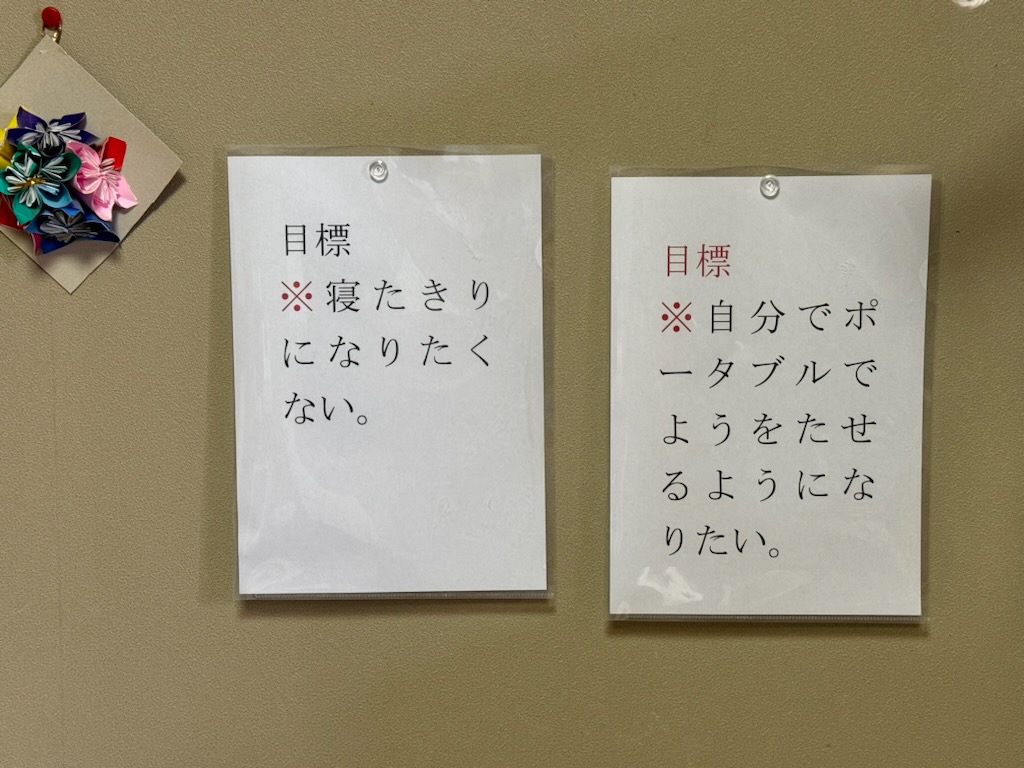 目標
※寝たきり
になりたく
ない。
目標
※自分でポ
ータブルで
ようをたせ
るようにな
りたい。